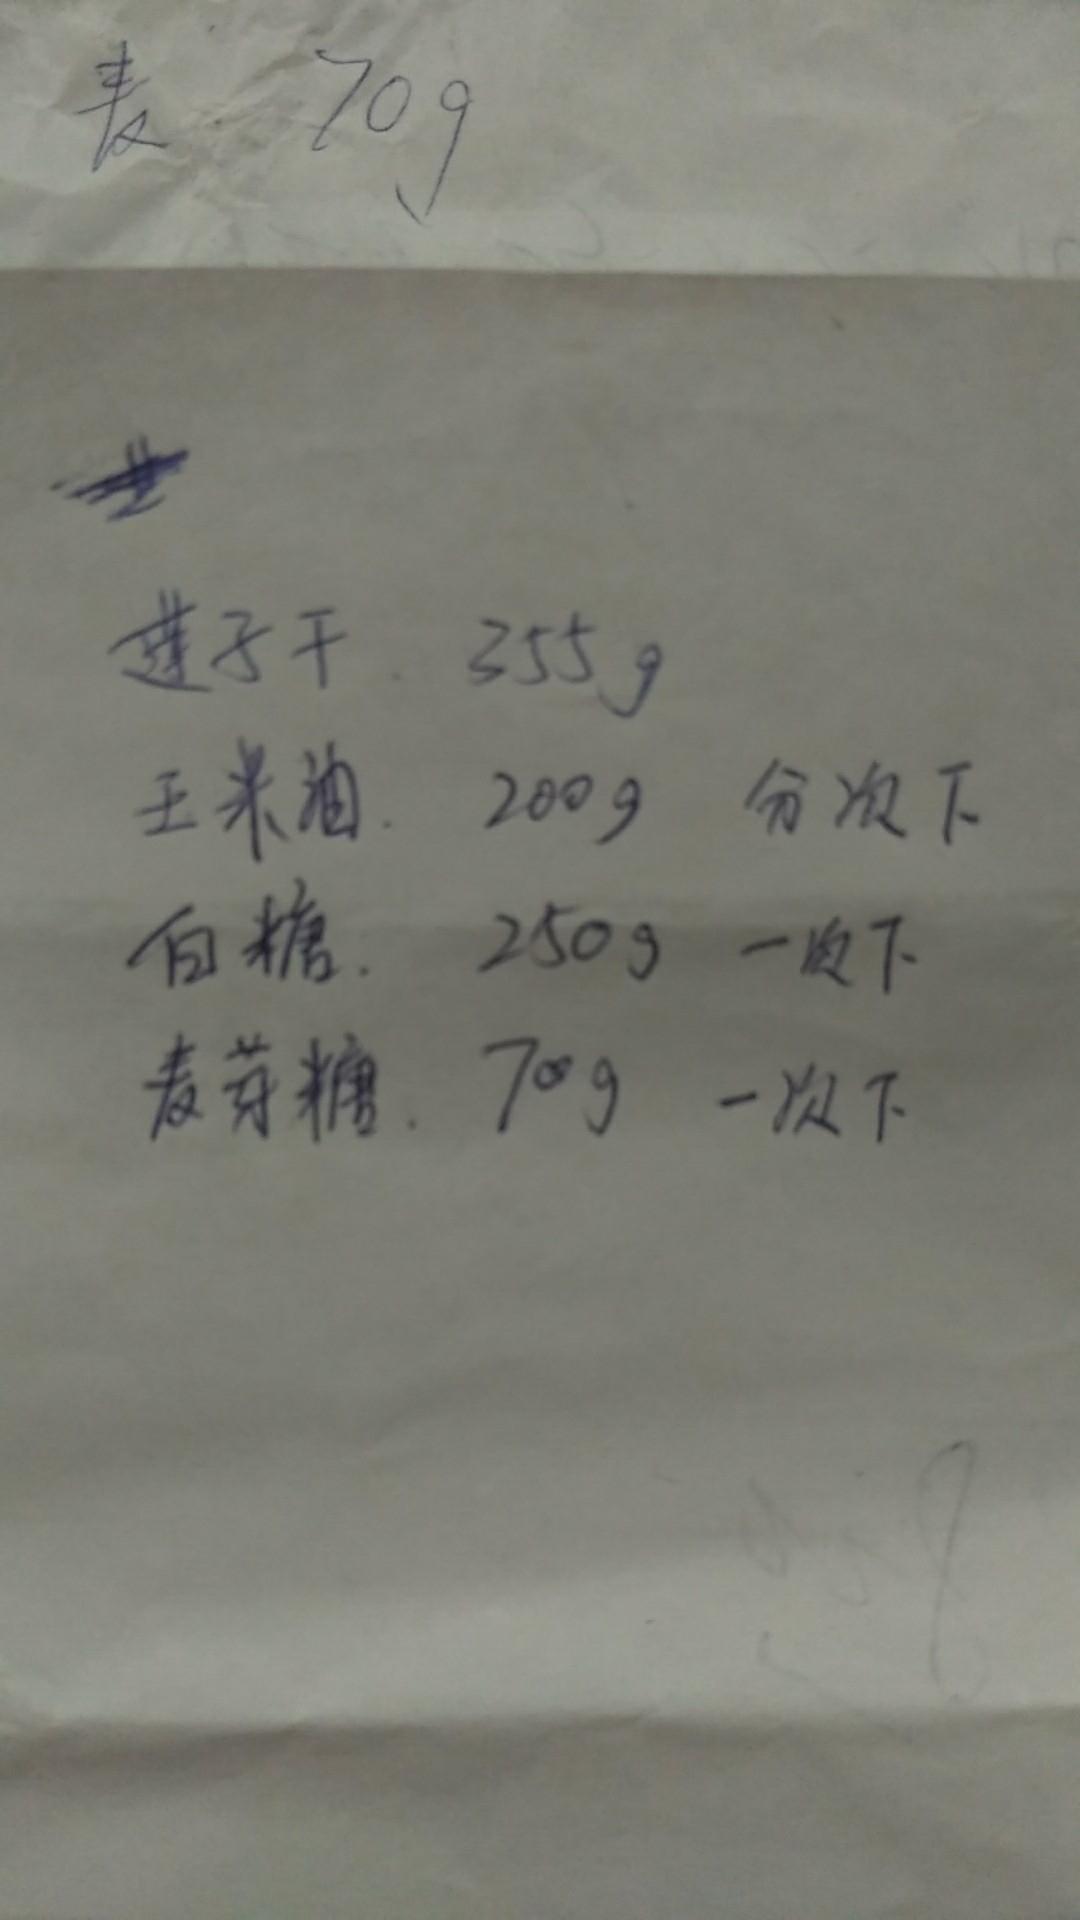 麦 70g
莲子干. 355g
玉米油. 200g 分次下
白糖. 250g 一次下
麦芽糖. 70g 一次下